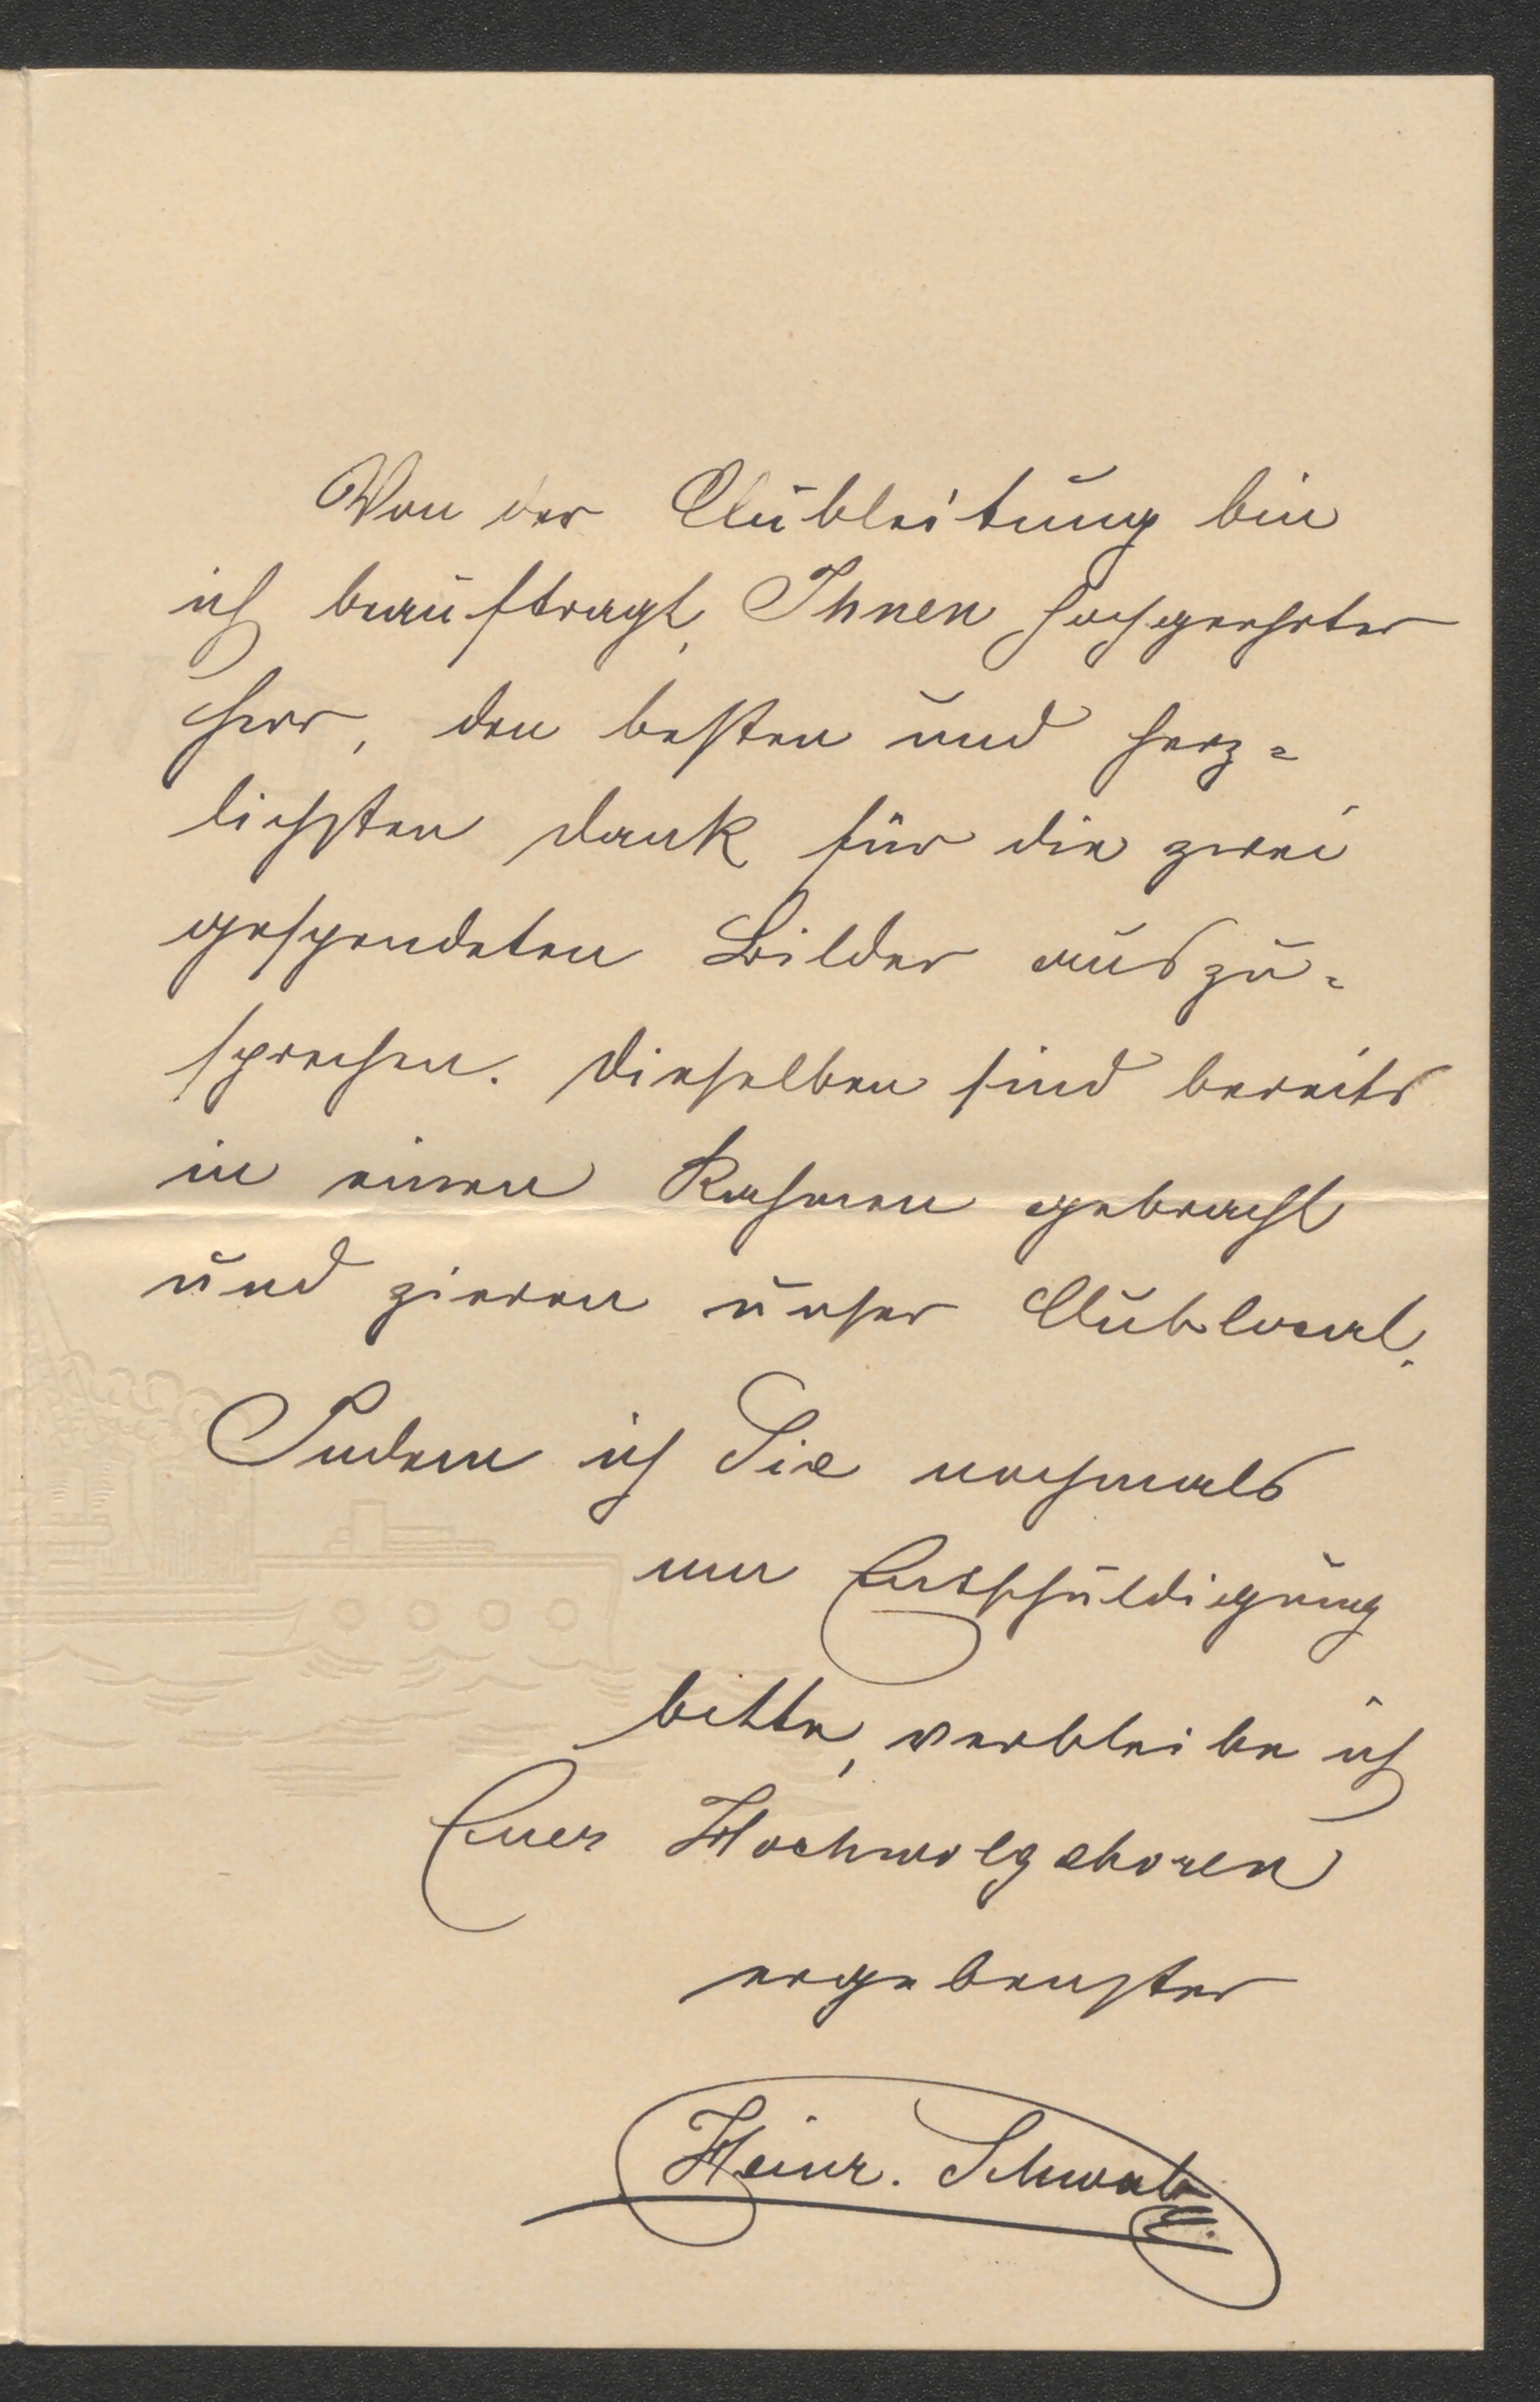 Von der Clubleitung bin
ich beauftragt, Ihnen hochgeehrter
Herr, den besten und herz=
lichsten Dank für die zwei
gespendeten Bilder auszu=
sprechen. Dieselben sind bereits
in einen Rahmen gebracht
und zieren unser Clublocal.
Indem ich Sie nochmals
um Entschuldigung
bitte, verbleibe ich
Euer Hochwolgeboren
ergebenster
Heinr. Schwab